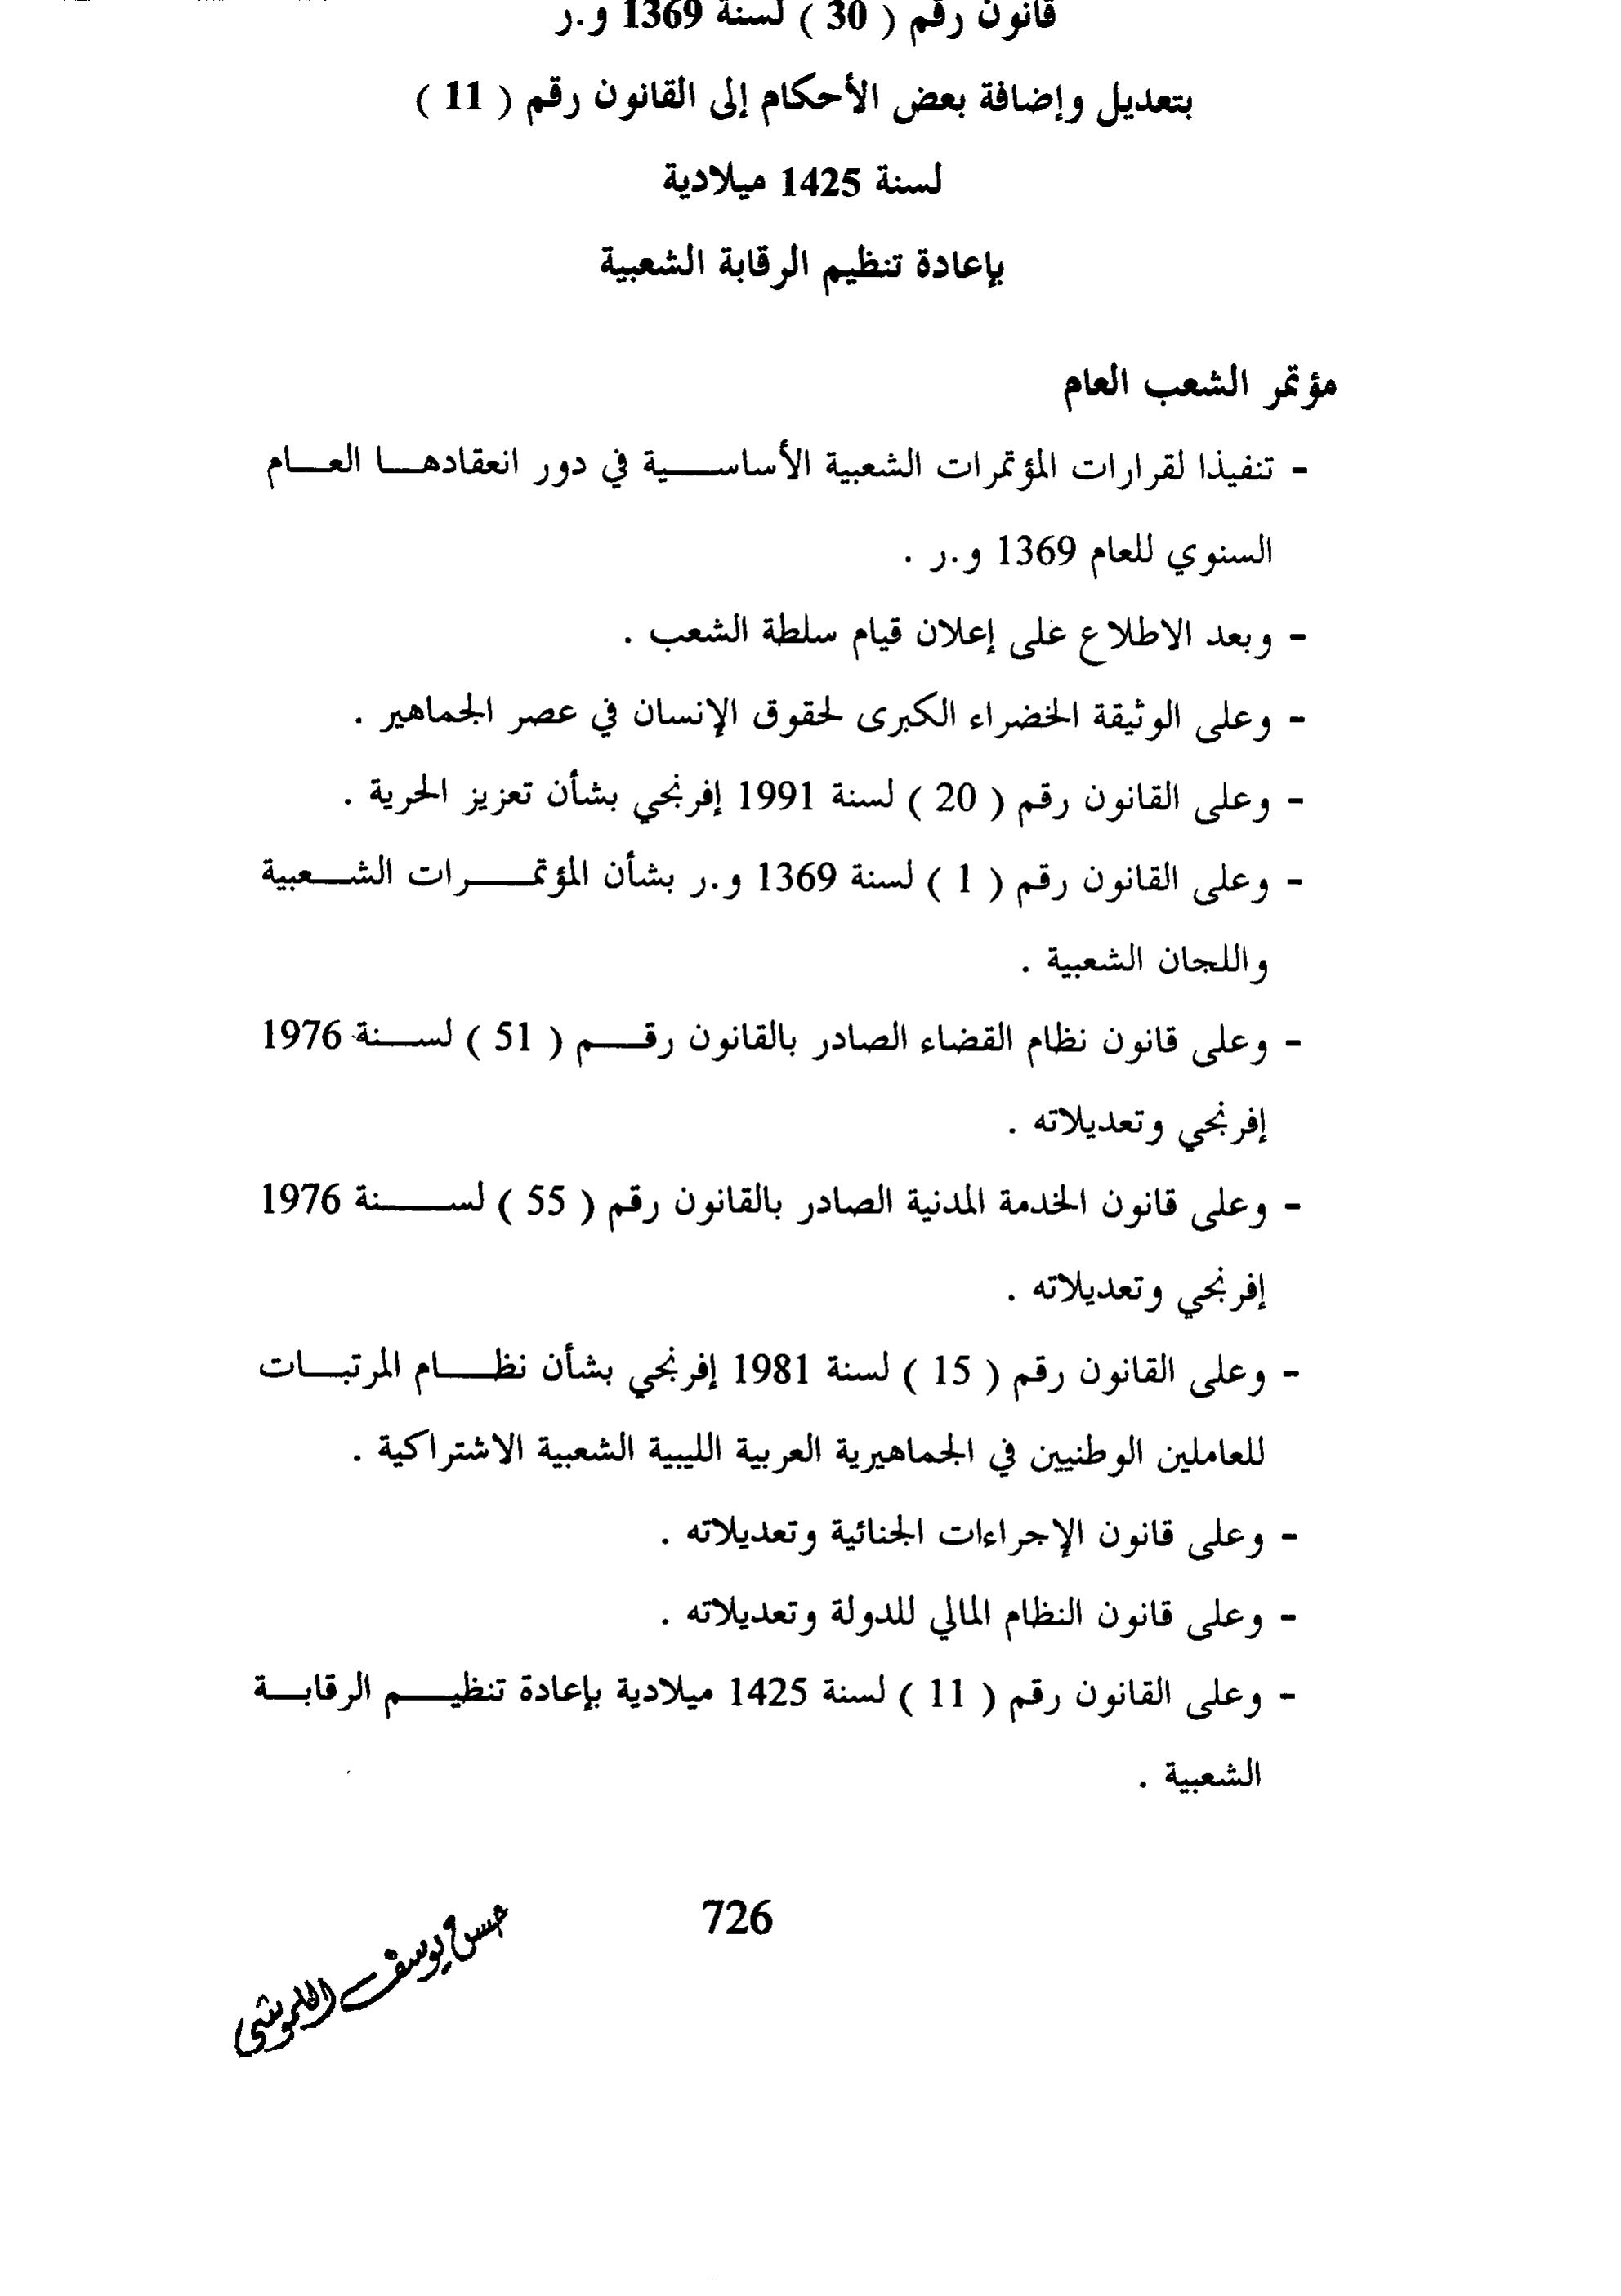 قانون رقم ( 30 ) لسنة 1369 و.ر
بتعديل وإضافة بعض الأحكام إلى القانون رقم ( 11 )
لسنة 1425 ميلادية
بإعادة تنظيم الرقابة الشعبية
مؤتمر الشعب العام
- تنفيذا لقرارات المؤتمرات الشعبية الأساسية في دور انعقادها العام
السنوي للعام 1369 و.ر .
- وبعد الاطلاع على إعلان قيام سلطة الشعب .
- وعلى الوثيقة الخضراء الكبرى لحقوق الإنسان في عصر الجماهير .
- وعلى القانون رقم ( 20 ) لسنة 1991 إفرنجي بشأن تعزيز الحرية .
- وعلى القانون رقم ( 1 ) لسنة 1369 و.ر بشأن المؤتمرات الشعبية
واللجان الشعبية .
- وعلى قانون نظام القضاء الصادر بالقانون رقم ( 51 ) لسنة 1976
إفرنجي وتعديلاته .
- وعلى قانون الخدمة المدنية الصادر بالقانون رقم ( 55 ) لسنة 1976
إفرنجي وتعديلاته .
- وعلى القانون رقم ( 15 ) لسنة 1981 إفرنجي بشأن نظام المرتبات
للعاملين الوطنيين في الجماهيرية العربية الليبية الشعبية الاشتراكية .
- وعلى قانون الإجراءات الجنائية وتعديلاته .
- وعلى قانون النظام المالي للدولة وتعديلاته .
- وعلى القانون رقم ( 11 ) لسنة 1425 ميلادية بإعادة تنظيم الرقابة
الشعبية .
726
حسن يوسف اللموشي